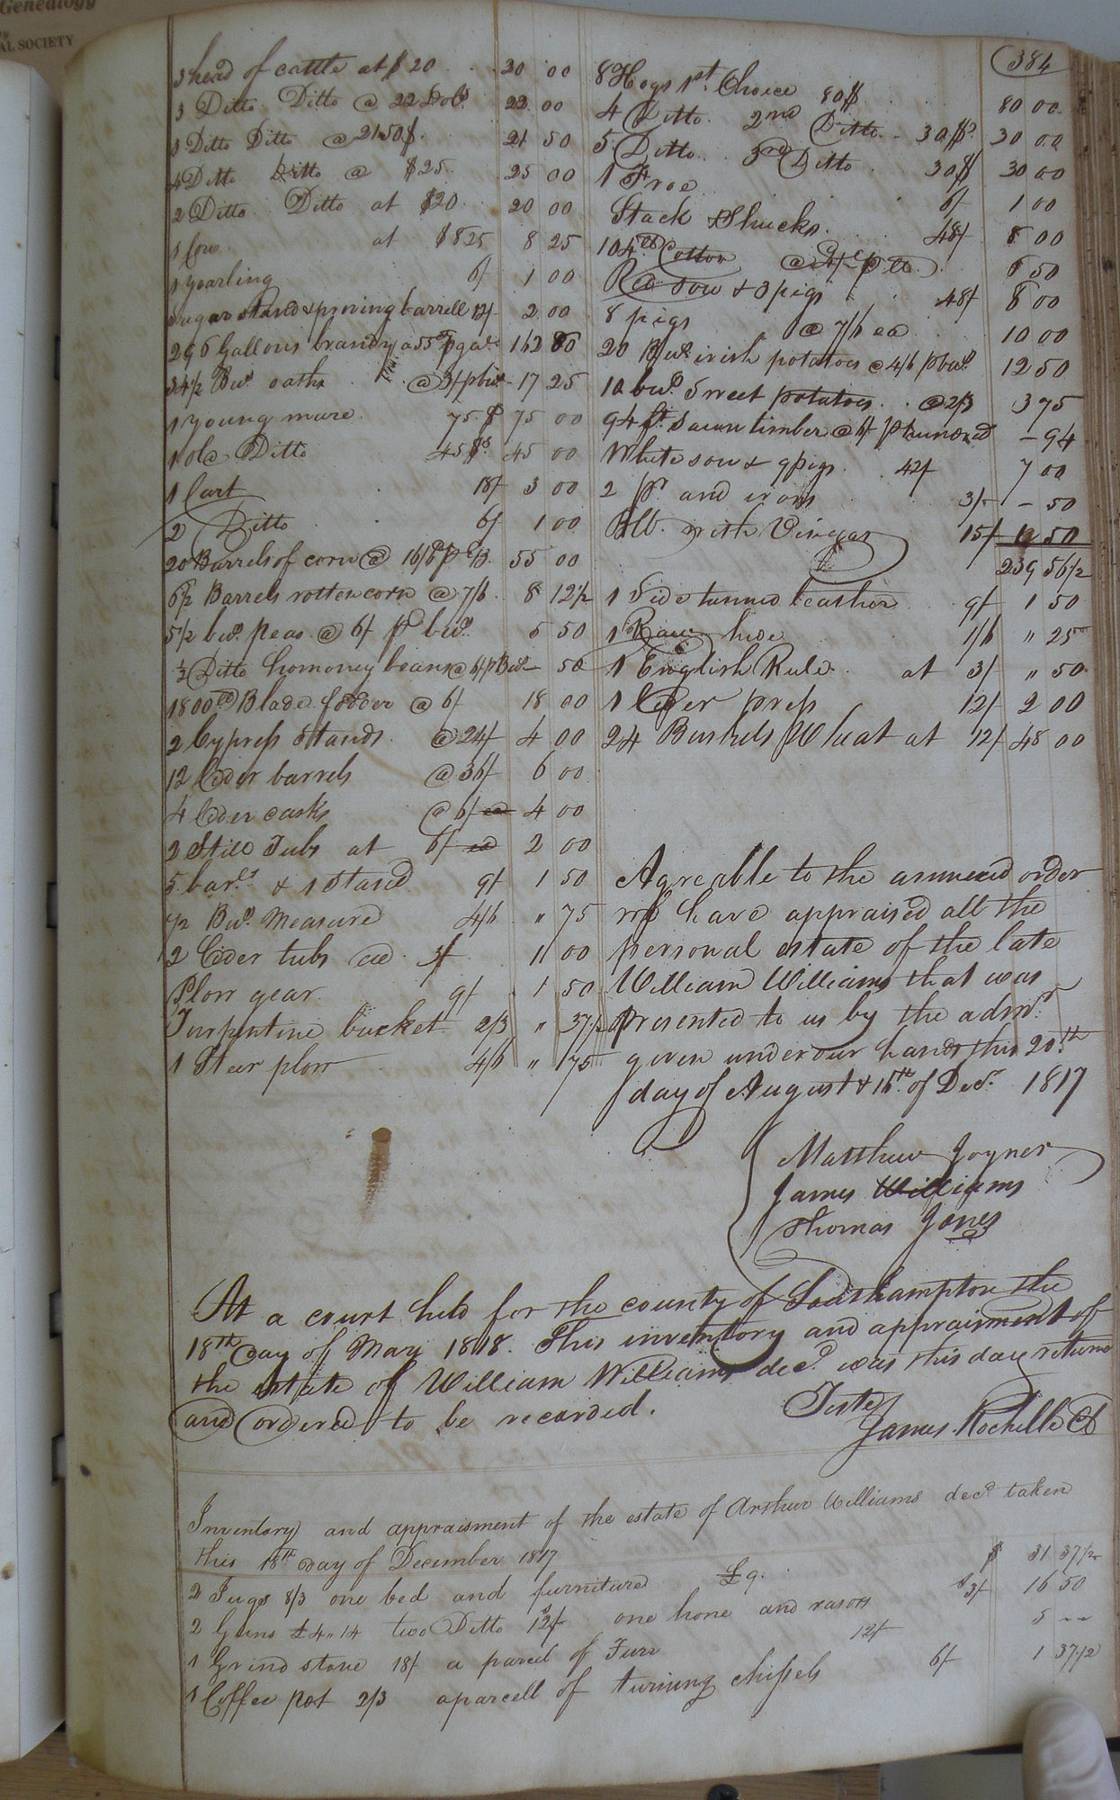 Genealogy
AL SOCIETY
384
3 head of cattle at $ 20 20 00
3 Ditto Ditto @ 22 Dols 22 00
3 Ditto Ditto @ 21.50 $. 21 50
4 Ditto Ditto @ $25 25 00
2 Ditto Ditto at $20 20 00
1 Cow at $825 8 25
1 yearling 6/ 1 00
Sugar stand & pruning barrell 12/ 2 00
296 Gallons brandy a 55 pr gal. 162 80
34½ Bus oaths @ 3/ pbus 17 25
1 young mare 75 $ 75 00
1 old Ditto 45 $s 45 00
1 Cart 18/ 3 00
2 Ditto 6/ 1 00
20 Barrels of corn @ 16/6 p B. 55 00
6½ Barrels rotten corn @ 7/6 8 12½
5½ bus. peas @ 6/ pr bus. 5 50
½ Ditto homoney beans @ 6/ p Bus 50
1800 lb Blade fodder @ 6/ 18 00
2 Cypress Stands @ 24/ 4 00
12 Cider barrels @ 36/ 6 00
4 Cider casks @ 6/ ea 4 00
2 Still Tubs at 6/ ea 2 00
5 bar.ls & 1 stand 9/ 1 50
½ Bus. Measure 4/6 " 75
2 Cider tubs ea 3/ 1 00
Plow gear 9/ 1 50
Turpentine bucket 2/3 " 37½
1 Steer plow 4/6 " 75
8 Hogs 1st. Choice 80$ 80 00
4 Ditto 2nd Ditto 30$ 30 00
5 Ditto 3rd Ditto 30$ 30 00
1 Froe 6/ 1 00
Stack Shucks 48/ 8 00
104 lb Cotton 6 50
Red sow & 3 pigs 48/ 8 00
8 pigs @ 7/6 ea 10 00
20 Bus irish potatoes @ 4/6 pbus. 12 50
10 bus. Sweet potatoes @ 2/3 3 75
94 ft. sawn timber @ 6/ p hundred - 94
White sow & 9 pigs 42/ 7 00
2 pr and irons 3/- - 50
Blb. with Vinegar 15/ 12 50
239 56½
1 Side tanned leather 9/ 1 50
1 Raw hide 1/6 " 25
1 English Rule at 3/ " 50
1 Cider press 12/ 2 00
24 Bushels Wheat at 12/ 48 00
Agreable to the annexed order
we have appraised all the
personal estate of the late
William Williams that was
presented to us by the admr.
given under our hands this 20th
day of August & 16th of Decr 1817
Matthew Joyner
James Williams
Thomas Jones
At a court held for the county of Southampton the
18th day of May 1818. This inventory and appraisment of
the estate of William Williams decd. was this day returned
and ordered to be recorded.
Teste
James Rochelle Ct
Inventory and appraisment of the estate of Arthur Williams decd taken
this 18th day of December 1817
2 Jugs 8/3 one bed and furniture £9. $ 31 37½
2 Guns £4"14 two Ditto 12/ one hone and rasors 3/ 16 50
1 Grind stone 18/ a parcel of Furr 12/ 5 --
1 Coffee pot 2/3 a parcell of turning chissels 6/ 1 37½